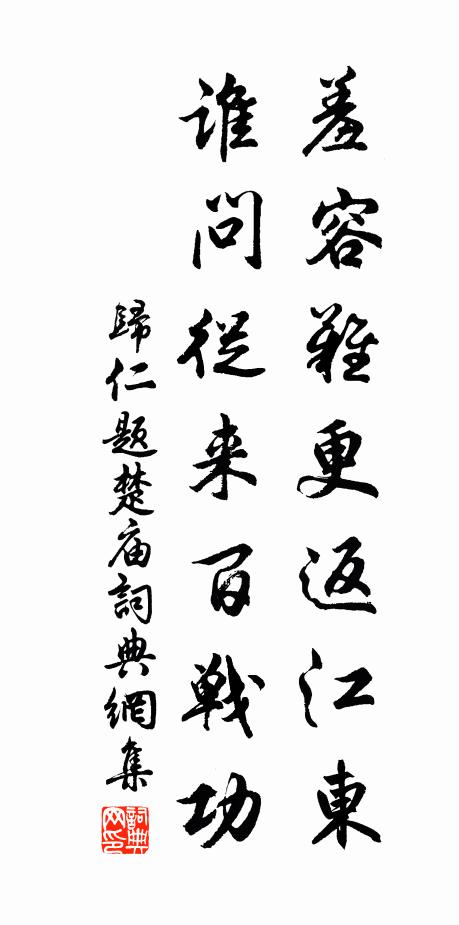 羞容難更返江東
誰問従来百戦功
歸仁題楚庙詞典網集
詞典网印